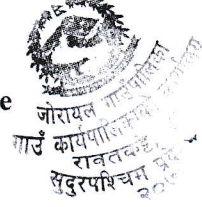 e
जोरायल गाउँपालिका
गाउँ कार्यपालिकाको कार्यालय
रावतकट्टे,
सुदुरपश्चिम प्रदेश